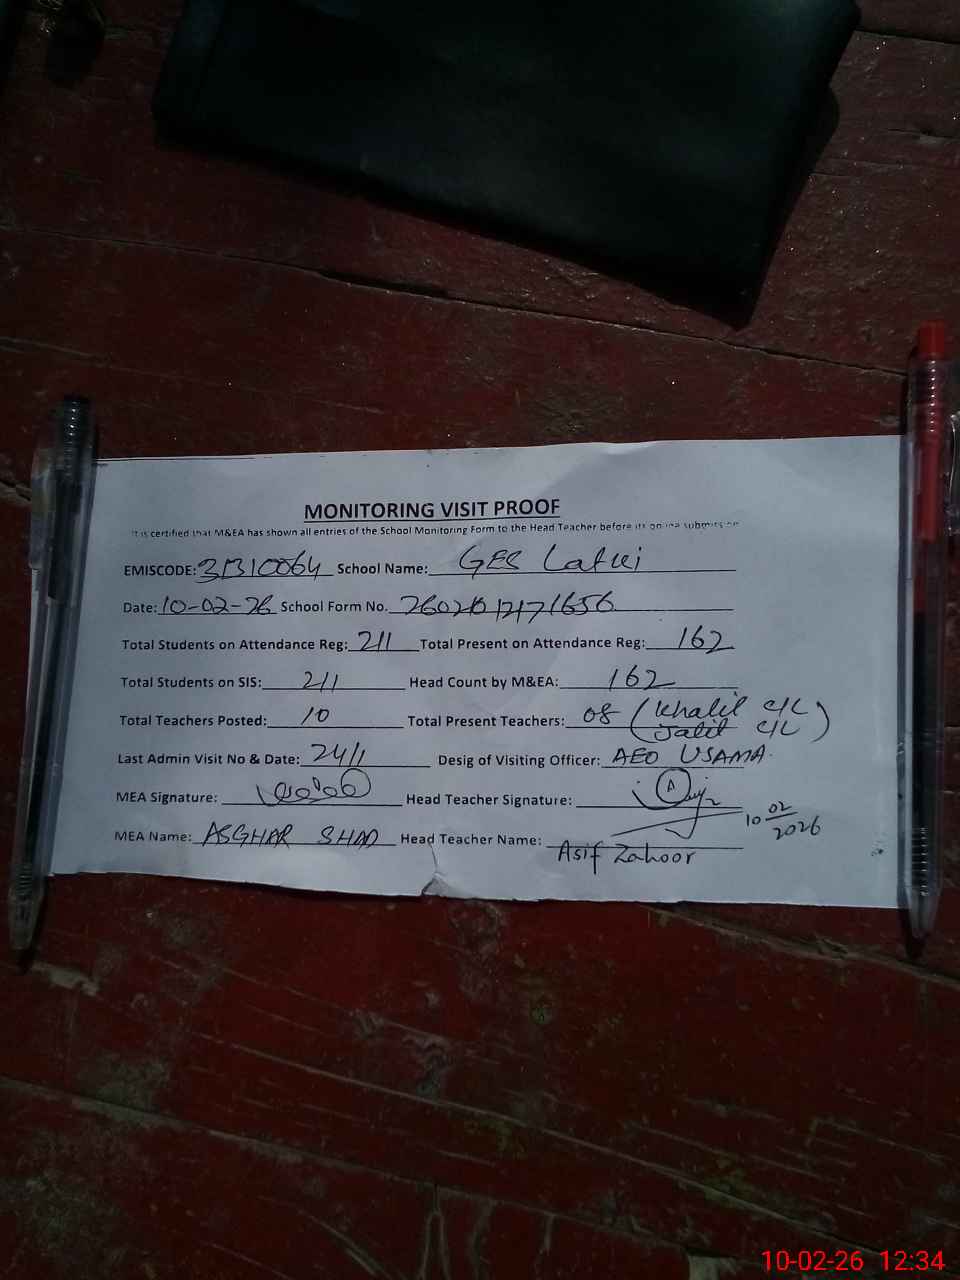 MONITORING VISIT PROOF
It is certified that M&EA has shown all entries of the School Monitoring Form to the Head Teacher before its online submission
EMISCODE: 31310064 School Name: GES Lalui
Date: 10-02-26 School Form No.
Total Students on Attendance Reg: 211 Total Present on Attendance Reg: 162
Total Students on SIS: 211 Head Count by M&EA: 162
Total Teachers Posted: 10 Total Present Teachers: 08 (Khalil C/L
Jalil C/L)
Last Admin Visit No & Date: 24/1 Desig of Visiting Officer: AEO USAMA
MEA Signature: Head Teacher Signature:
10 02
2026
MEA Name: ASGHAR SHAD Head Teacher Name:
Asif Zahoor
10-02-26 12:34